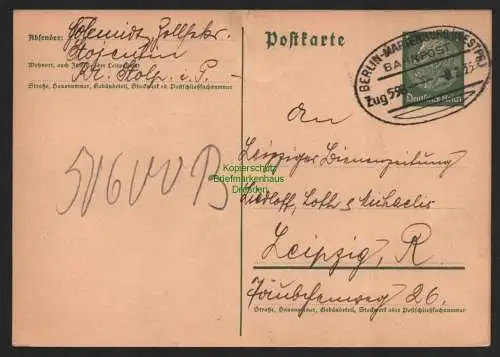 Absender: Schmidt, Zollsekr.
Stojentin
Wohnort, auch Zustell- oder Leitpostamt
Kr. Stolp i. P.
Straße, Hausnummer, Gebäudeteil, Stockwerk od. Postschließfachnummer
Postkarte
BERLIN-MARIENBURG (WESTPR)
BAHNPOST
Zug 599
Deutsches Reich
An
Leipziger Bienenzeitung
Liedloff, Loth & Michaelis
Leipzig, R
Täubchenweg 26.
Straße, Hausnummer, Gebäudeteil, Stockwerk oder Postschließfachnummer
Kopierschutz
Briefmarkenhaus
Dresden